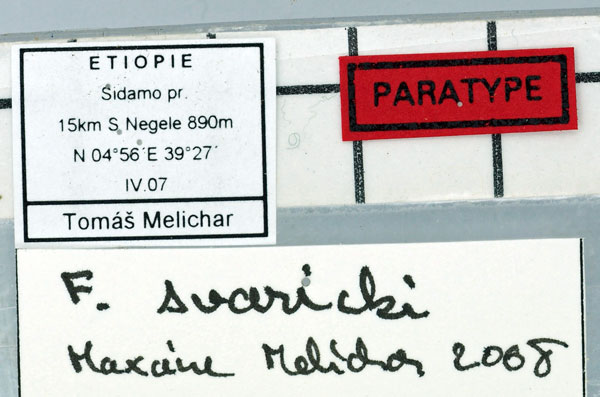 ETIOPIE
Sidamo pr.
15km S Negele 890m
N 04°56´E 39°27´
IV.07
Tomáš Melichar
PARATYPE
F. svaricki
Melichar 2008